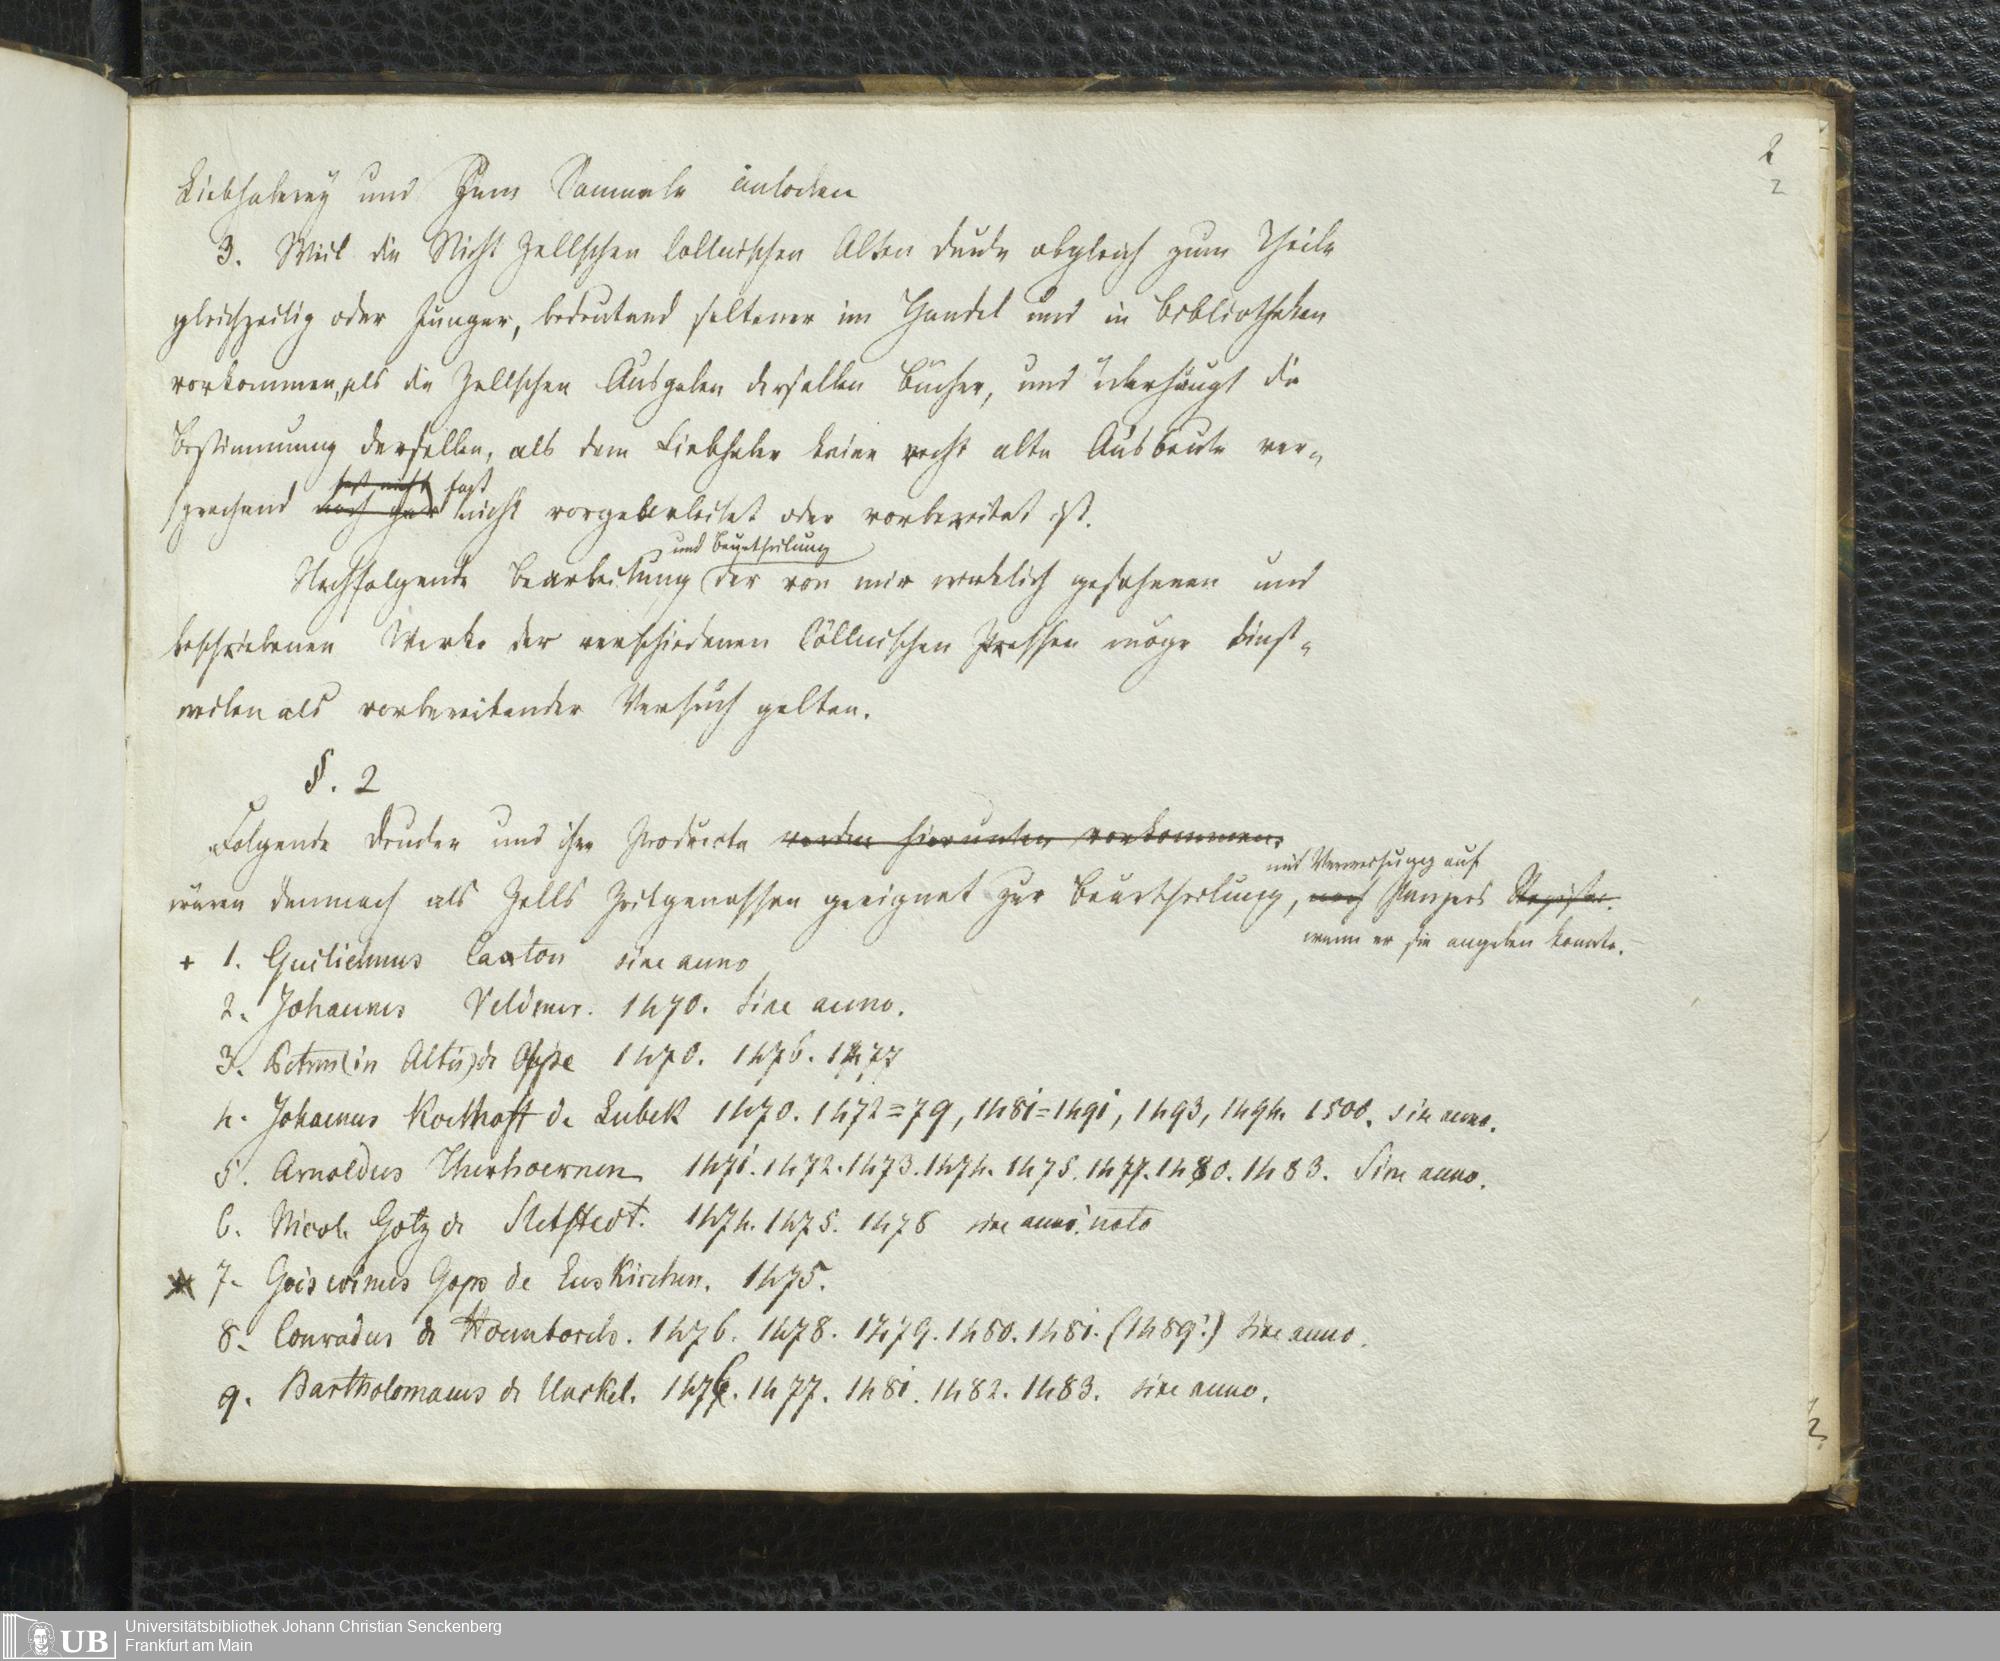 2
2
Liebhaberey und zum Sammeln anlocken
3. Weil die Nicht Zellschen Cöllnischen Alten Drucke obgleich zum Theile
gleichzeitig oder junger, bedeutend seltener im Handel und in Bibliotheken
vorkommen, als die Zellschen Ausgaben derselben Bücher, und überhaupt die
Bestimmung derselben, als dem Liebhaber keine recht alte Ausbeute ver-
fast nicht fast
sprechend noch gar nicht vorgearbeitet oder vorbereitet ist.
und Beurtheilung
Nachfolgende Bearbeitung der von mir wirklich gesehenen und
beschriebenen Werke der verschiedenen Cöllnischen Pressen möge einst-
weilen als vorbereitender Versuch gelten.
§. 2
Folgende Drucker und ihre Producte werden hierunter vorkommen.
mit Verweisung auf
wären demnach als Zells Zeitgenossen geeignet zur Beurtheilung, nach Panzers Register.
wenn er sie angeben konnte.
+ 1. Guilielmus Caxton sine anno
2. Johannes Veldener. 1470. Sine anno.
3. Petrus (in Altis) de Olpe 1470. 1476. 1477
4. Johannes Koelhoff de Lubek 1470. 1472=79, 1481=1491, 1493, 1494. 1500. sine anno.
5. Arnoldus Therhoernen 1471. 1472. 1473. 1474. 1475. 1477. 1480. 1483. Sine anno.
6. Nicol. Gotz de Sletstedt. 1474. 1475. 1478 sine anni nota
7. Goiswinus Gops de Euskirchen. 1475.
8. Conradus de Hoemborch. 1476. 1478. 1479. 1480. 1481. (1489?) sine anno.
9. Bartholomaeus de Unckel. 1476. 1477. 1481. 1482. 1483. sine anno.
Universitätsbibliothek Johann Christian Senckenberg
UB
Frankfurt am Main